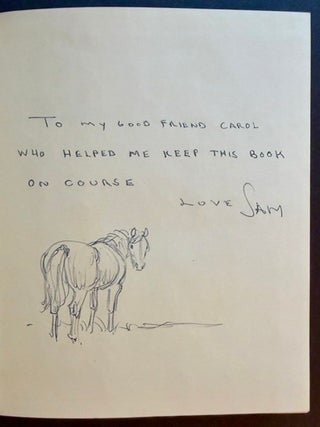 To my GOOD FRIEND CAROL
WHO HELPED ME KEEP THIS BOOK
ON COURSE
LOVE SAM